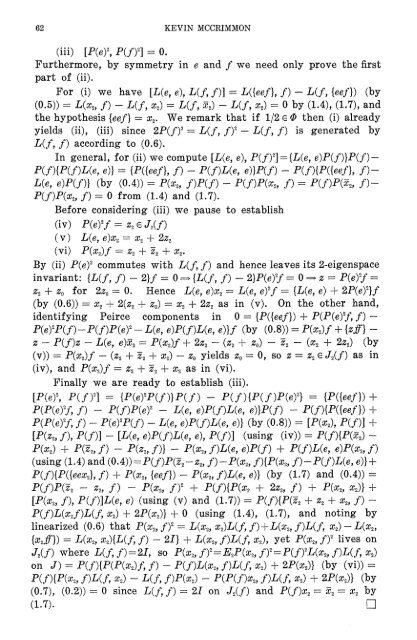 62 KEVIN MCCRIMMON
(iii) [P(e)², P(f)²] = 0.
Furthermore, by symmetry in e and f we need only prove the first
part of (ii).
For (i) we have [L(e, e), L(f, f)] = L({eef}, f) − L(f, {eef}) (by
(0.5)) = L(x₂, f) − L(f, x₂) = L(f, x̄₂) − L(f, x₂) = 0 by (1.4), (1.7), and
the hypothesis {eef} = x₂. We remark that if 1/2 ∈ Φ then (i) already
yields (ii), (iii) since 2P(f)² = L(f, f)² − L(f, f) is generated by
L(f, f) according to (0.6).
In general, for (ii) we compute [L(e, e), P(f)²]={L(e, e)P(f)}P(f)−
P(f){P(f)L(e, e)} = {P({eef}, f) − P(f)L(e, e)}P(f) − P(f){P({eef}, f)−
L(e, e)P(f)} (by (0.4)) = P(x₂, f)P(f) − P(f)P(x₂, f) = P(f)P(x̄₂, f)−
P(f)P(x₂, f) = 0 from (1.4) and (1.7).
Before considering (iii) we pause to establish
(iv) P(e)²f = z₂ ∈ J₂(f)
(v) L(e, e)x₂ = x₂ + 2z₂
(vi) P(x₂)f = z₂ + z̄₂ + x₂.
By (ii) P(e)² commutes with L(f, f) and hence leaves its 2-eigenspace
invariant: {L(f, f) − 2}f = 0 ⇒ {L(f, f) − 2}P(e)²f = 0 ⇒ z = P(e)²f =
z₂ + z₀ for 2z₀ = 0. Hence L(e, e)x₂ = L(e, e)²f = {L(e, e) + 2P(e)²}f
(by (0.6)) = x₂ + 2(z₂ + z₀) = x₂ + 2z₂ as in (v). On the other hand,
identifying Peirce components in 0 = {P({eef}) + P(P(e)²f, f) −
P(e)²P(f)−P(f)P(e)² − L(e, e)P(f)L(e, e)}f (by (0.8)) = P(x₂)f + {zff} −
z − P(f)z − L(e, e)x̄₂ = P(x₂)f + 2z₂ − (z₂ + z₀) − z̄₂ − (x₂ + 2z₂) (by
(v)) = P(x₂)f − (z₂ + z̄₂ + x₂) − z₀ yields z₀ = 0, so z = z₂ ∈ J₂(f) as in
(iv), and P(x₂)f = z₂ + z̄₂ + x₂ as in (vi).
Finally we are ready to establish (iii).
[P(e)², P(f)²] = {P(e)²P(f)}P(f) − P(f){P(f)P(e)²} = {P({eef}) +
P(P(e)²f, f) − P(f)P(e)² − L(e, e)P(f)L(e, e)}P(f) − P(f){P({eef}) +
P(P(e)²f, f) − P(e)²P(f) − L(e, e)P(f)L(e, e)} (by (0.8)) = [P(x₂), P(f)] +
[P(z₂, f), P(f)] − [L(e, e)P(f)L(e, e), P(f)] (using (iv)) = P(f){P(x̄₂) −
P(x₂) + P(z̄₂, f) − P(z₂, f)} − P(x₂, f)L(e, e)P(f) + P(f)L(e, e)P(x₂, f)
(using (1.4) and (0.4))=P(f)P(z̄₂−z₂, f)−P(x₂, f){P(x₂, f)−P(f)L(e, e)}+
P(f){P({eex₂}, f) + P(x₂, {eef}) − P(x₂, f)L(e, e)} (by (1.7) and (0.4)) =
P(f)P(z̄₂ − z₂, f) − P(x₂, f)² + P(f){P(x₂ + 2z₂, f) + P(x₂, x₂)} +
[P(x₂, f), P(f)]L(e, e) (using (v) and (1.7)) = P(f){P(z̄₂ + z₂ + x₂, f) −
P(f)L(x₂,f)L(f, x₂) + 2P(x₂)} + 0 (using (1.4), (1.7), and noting by
linearized (0.6) that P(x₂, f)² = L(x₂, x₂)L(f, f)+L(x₂, f)L(f, x₂) − L(x₂,
{x₂ff}) = L(x₂, x₂){L(f, f) − 2I} + L(x₂, f)L(f, x₂), yet P(x₂, f)² lives on
J₂(f) where L(f, f)=2I, so P(x₂, f)²=E₂P(x₂, f)²=P(f)²L(x₂, f)L(f, x₂)
on J) = P(f){P(P(x₂)f, f) − P(f)L(x₂, f)L(f, x₂) + 2P(x₂)} (by (vi)) =
P(f){P(x₂, f)L(f, x₂) − L(f, f)P(x₂) − P(P(f)x₂, f)L(f, x₂) + 2P(x₂)} (by
(0.7), (0.2)) = 0 since L(f, f) = 2I on J₂(f) and P(f)x₂ = x̄₂ = x₂ by
(1.7). □